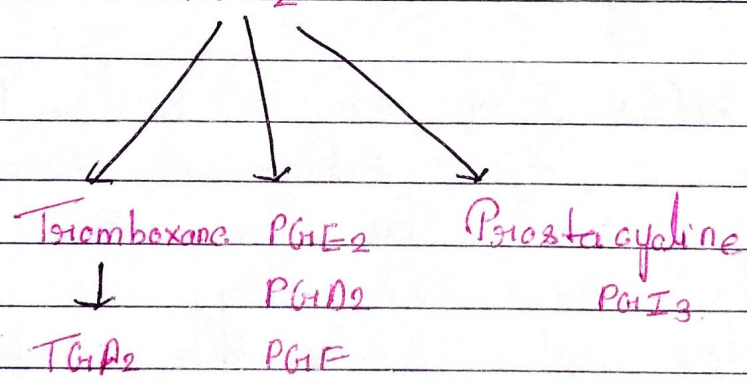 2
Tromboxane PGE2 Prostacycline
PGD2 PGI3
TGA2 PGF